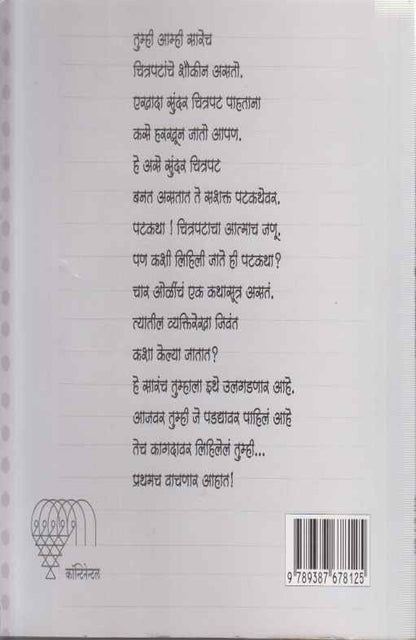 तुम्ही आम्ही सारेच
चित्रपटांचे शौकीन असतो.
एखादा सुंदर चित्रपट पाहताना
कसे हरखून जातो आपण.
हे असे सुंदर चित्रपट
बनत असतात ते सशक्त पटकथेवर.
पटकथा ! चित्रपटाचा आत्माच जणू.
पण कशी लिहिली जाते ही पटकथा?
चार ओळींचं एक कथासूत्र असतं.
त्यातील व्यक्तिरेखा जिवंत
कशा केल्या जातात?
हे सारंच तुम्हाला इथे उलगडणार आहे.
आजवर तुम्ही जे पडद्यावर पाहिलं आहे
तेच कागदावर लिहिलेलं तुम्ही...
प्रथमच वाचणार आहात!
कॉन्टिनेन्टल
9 789387 678125